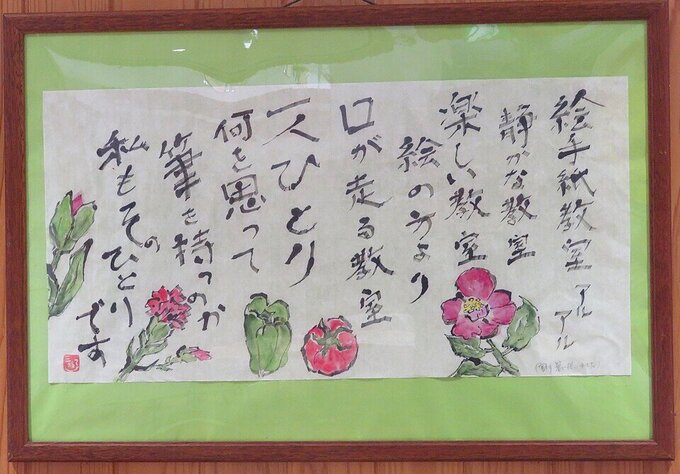 絵手紙教室アルアル
静かな教室
楽しい教室
絵の方より
口が走る教室
一人ひとり
何を思って
筆を持つのか
私もそのひとり
です